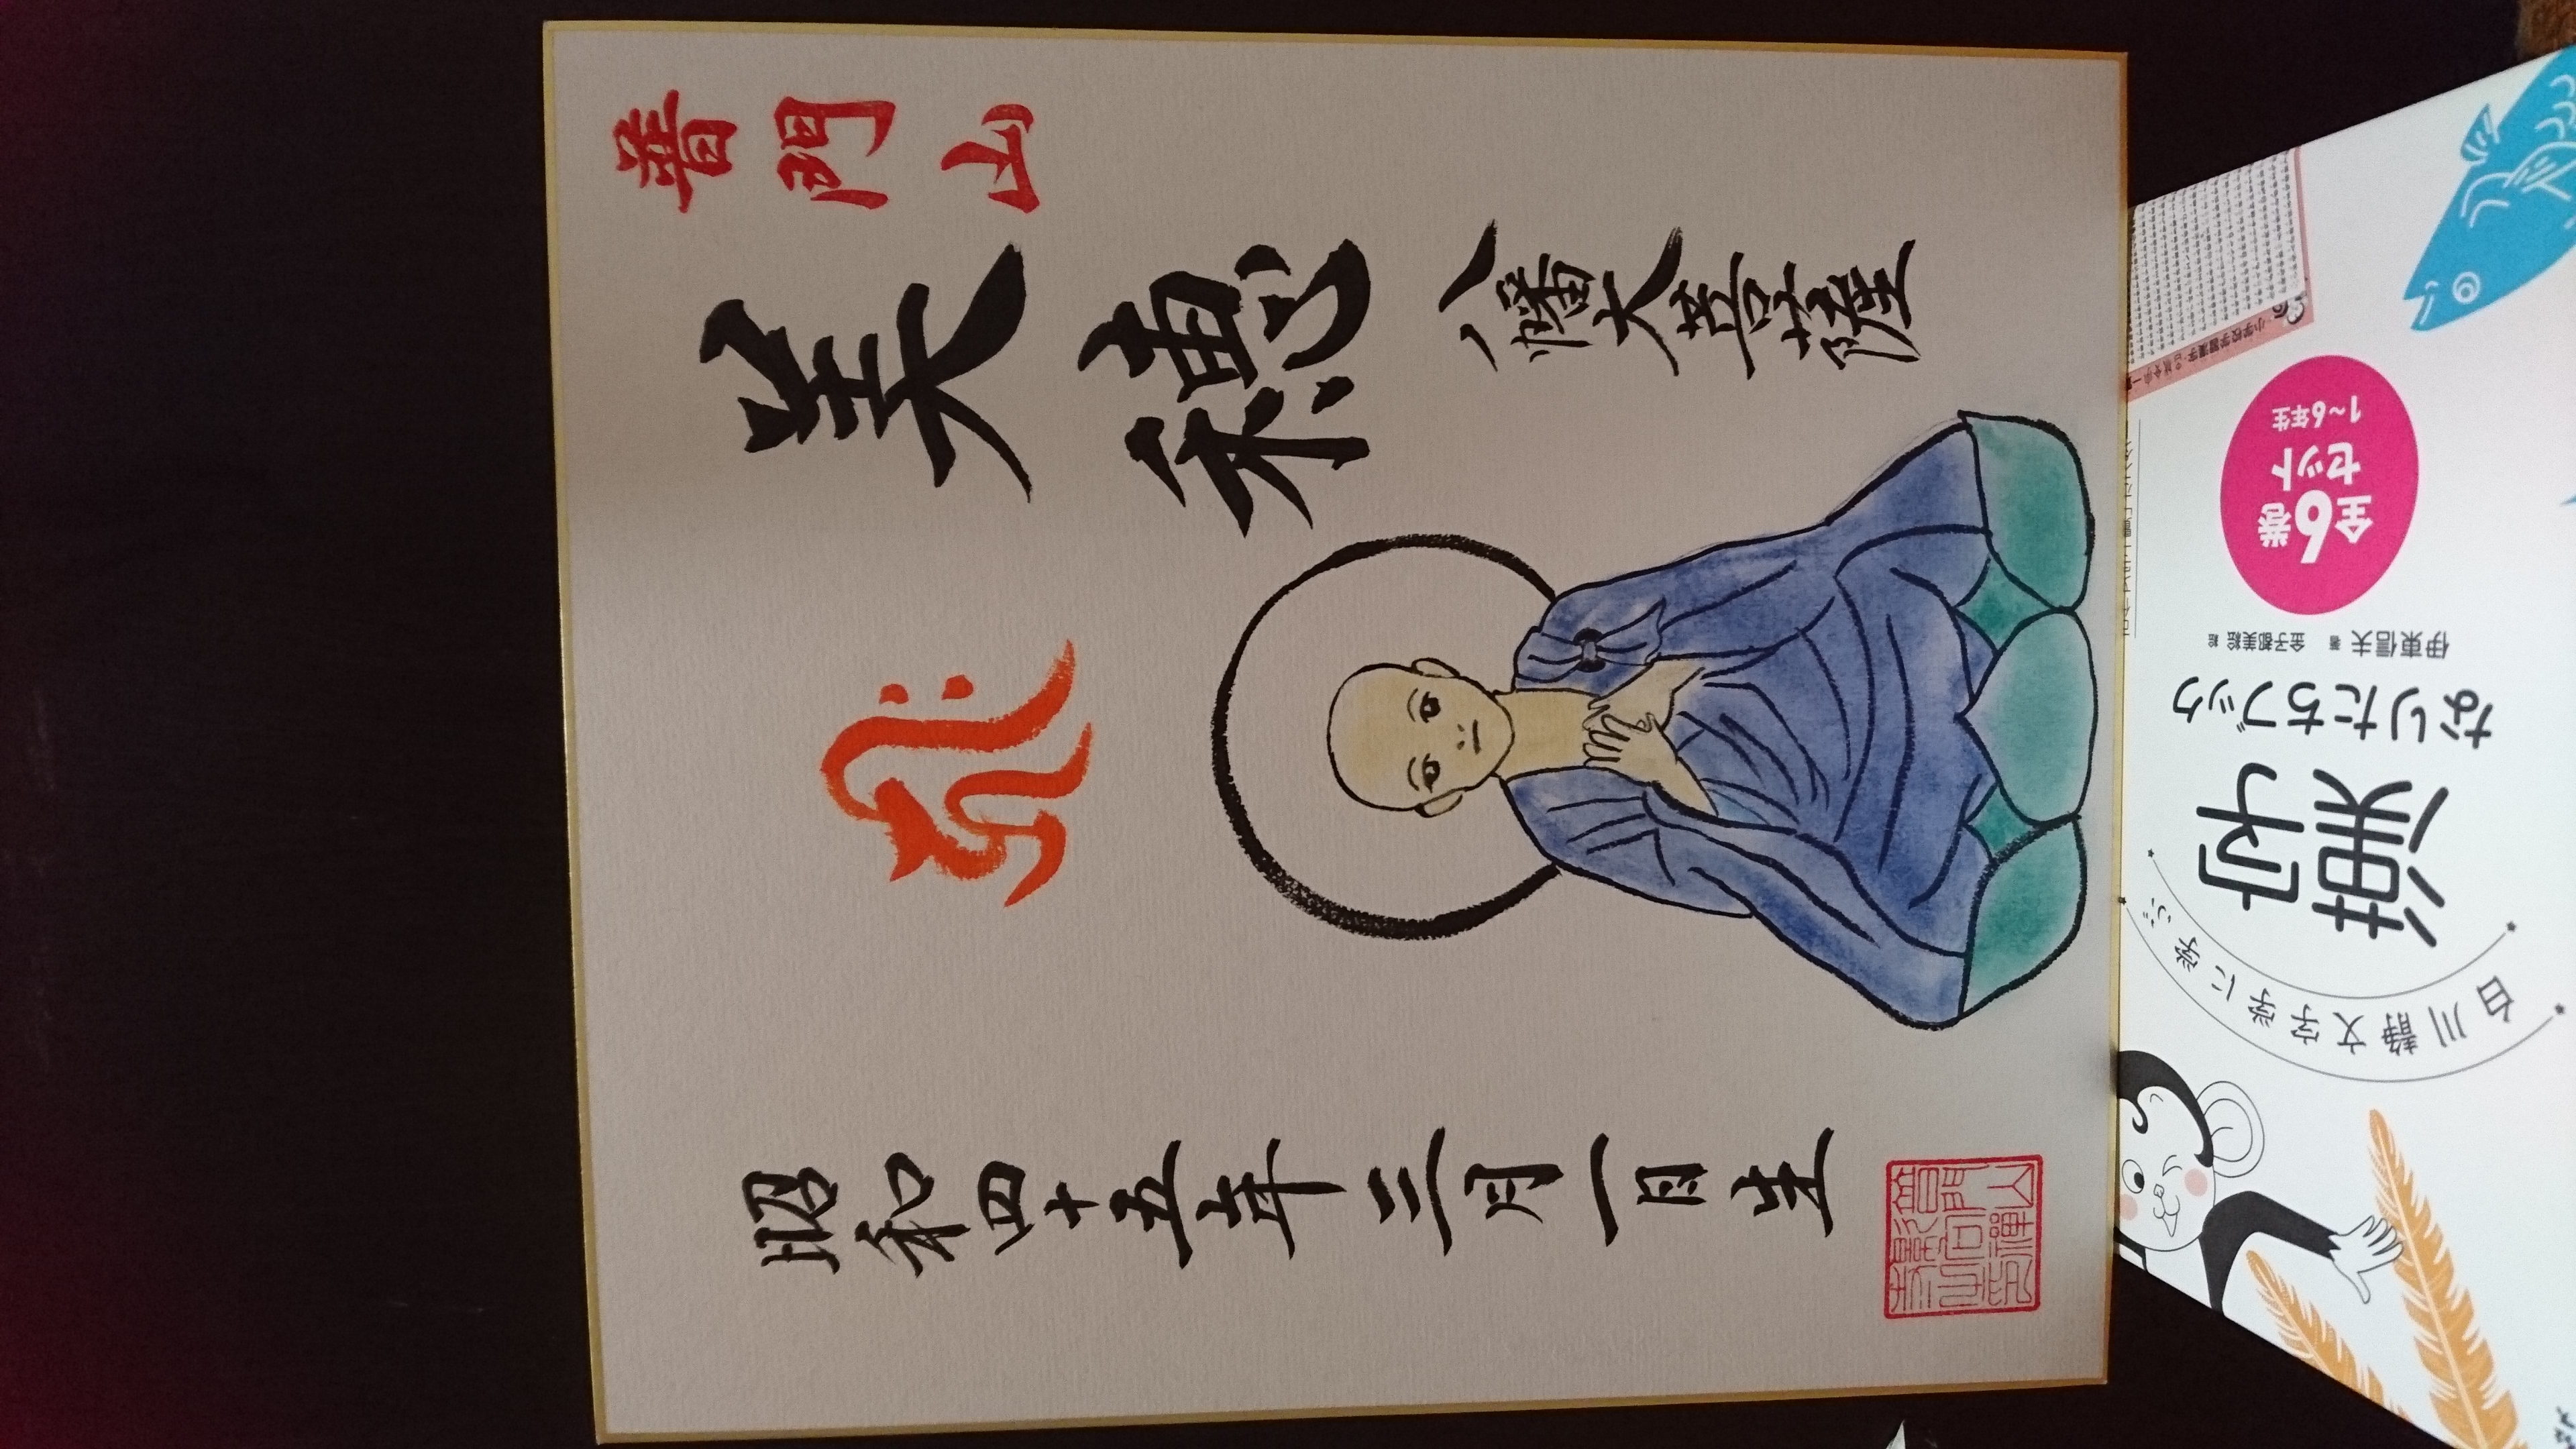 普門山
美穂
八幡大菩薩
昭和四十五年三月一日生
白川静文字学に学ぶ
漢字
なりたちブック
伊東信夫 著 金子都美絵 絵
全6巻
セット
1~6年生